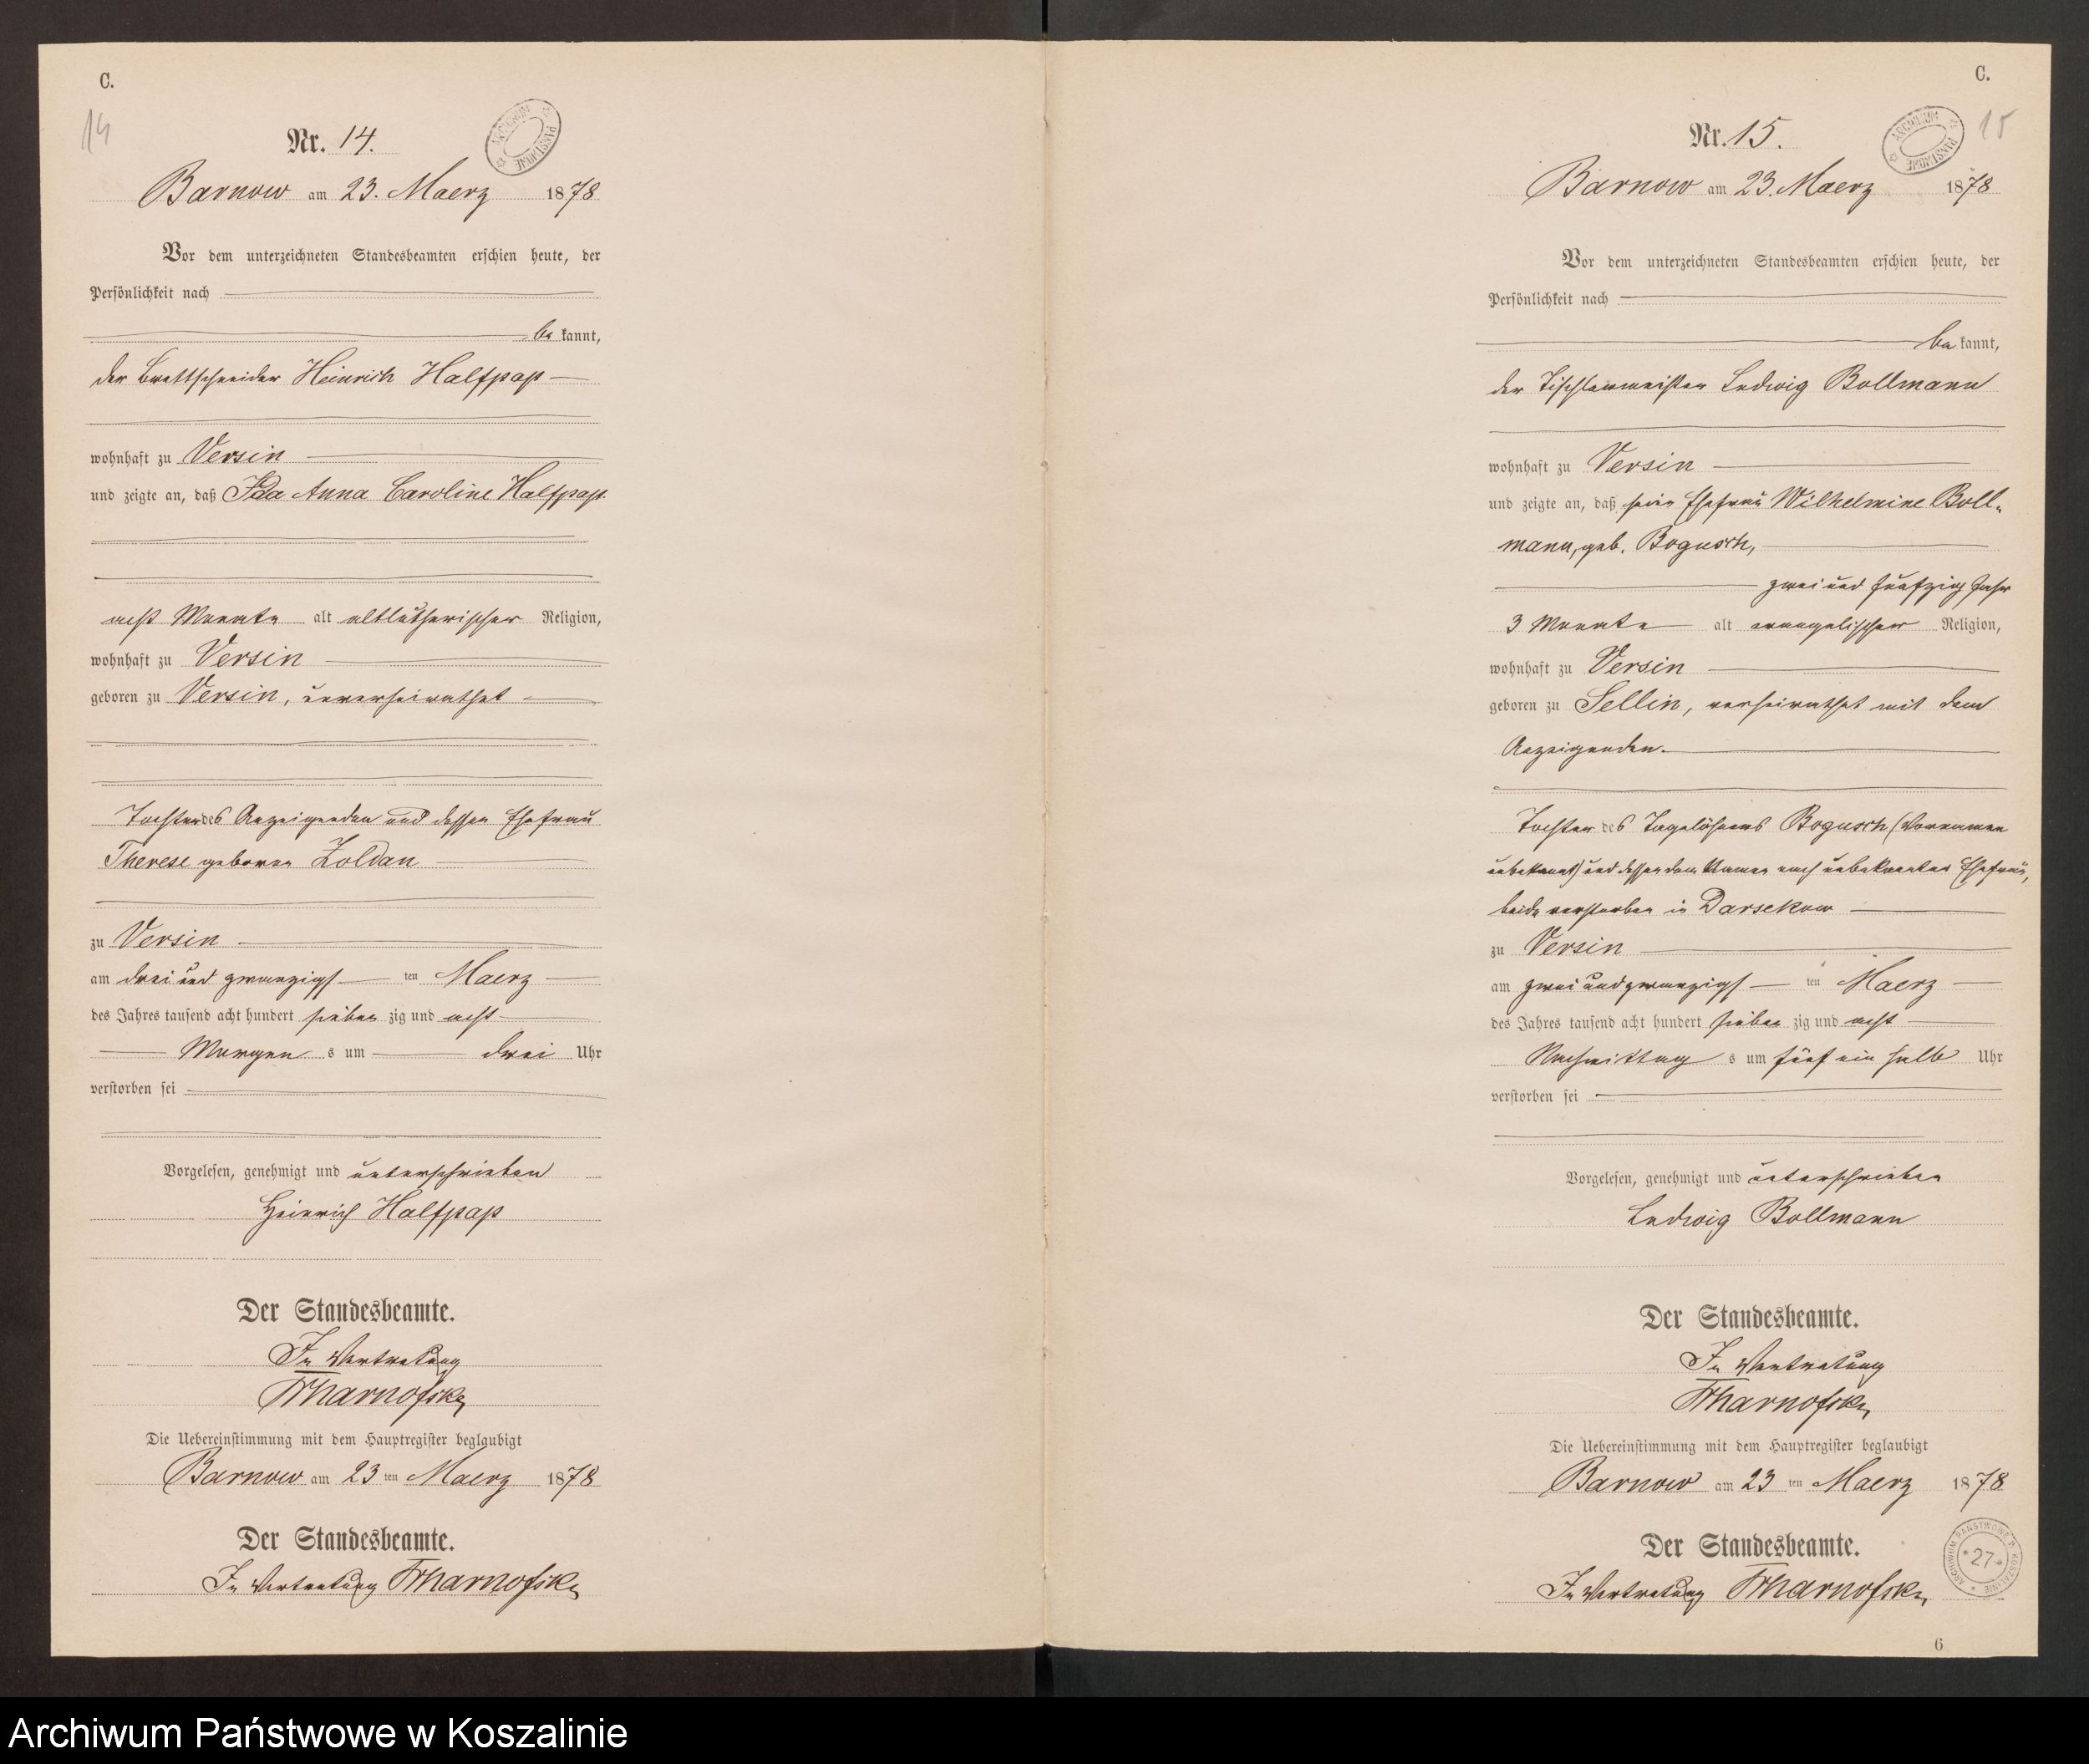 C.
14
Nr. 14.
ARCHIWUM PAŃSTWOWE
Barnow am 23. Maerz 1878
Vor dem unterzeichneten Standesbeamten erschien heute, der
Persönlichkeit nach
be kannt,
der Brettschneider Heinrich Halfpap
wohnhaft zu Versin
und zeigte an, daß Ida Anna Caroline Halfpap
acht Monate alt altlutherischer Religion,
wohnhaft zu Versin
geboren zu Versin, unverheirathet
Tochter des Anzeigenden und dessen Ehefrau
Therese geboren Zoldan
zu Versin
am drei und zwanzigs ten Maerz
des Jahres tausend acht hundert sieben zig und acht
Morgen s um drei Uhr
verstorben sei
Vorgelesen, genehmigt und unterschrieben
Heinrich Halfpap
Der Standesbeamte.
In Vertretung
Die Uebereinstimmung mit dem Hauptregister beglaubigt
Barnow am 23 ten Maerz 1878
Der Standesbeamte.
In Vertretung
C.
15
Nr. 15.
ARCHIWUM PAŃSTWOWE
Barnow am 23. Maerz 1878
Vor dem unterzeichneten Standesbeamten erschien heute, der
Persönlichkeit nach
be kannt,
der Tischlermeister Ludwig Bollmann
wohnhaft zu Versin
und zeigte an, daß seine Ehefrau Wilhelmine Boll-
mann, geb. Bogusch,
zwei und fünfzig Jahr
3 Monate alt evangelischer Religion,
wohnhaft zu Versin
geboren zu Sellin, verheirathet mit dem
Anzeigenden.
Tochter des Tagelöhners Bogusch (Vornamen
unbekannt) und dessen dem Namen nach unbekannten Ehefrau,
beide verstorben in Darsekow
zu Versin
am zwei und zwanzigs ten Maerz
des Jahres tausend acht hundert sieben zig und acht
Nachmittag s um fünf ein halb Uhr
verstorben sei
Vorgelesen, genehmigt und unterschrieben
Ludwig Bollmann
Der Standesbeamte.
In Vertretung
Die Uebereinstimmung mit dem Hauptregister beglaubigt
Barnow am 23 ten Maerz 1878
Der Standesbeamte.
In Vertretung
ARCHIWUM PAŃSTWOWE W KOSZALINIE
27
6
Archiwum Państwowe w Koszalinie